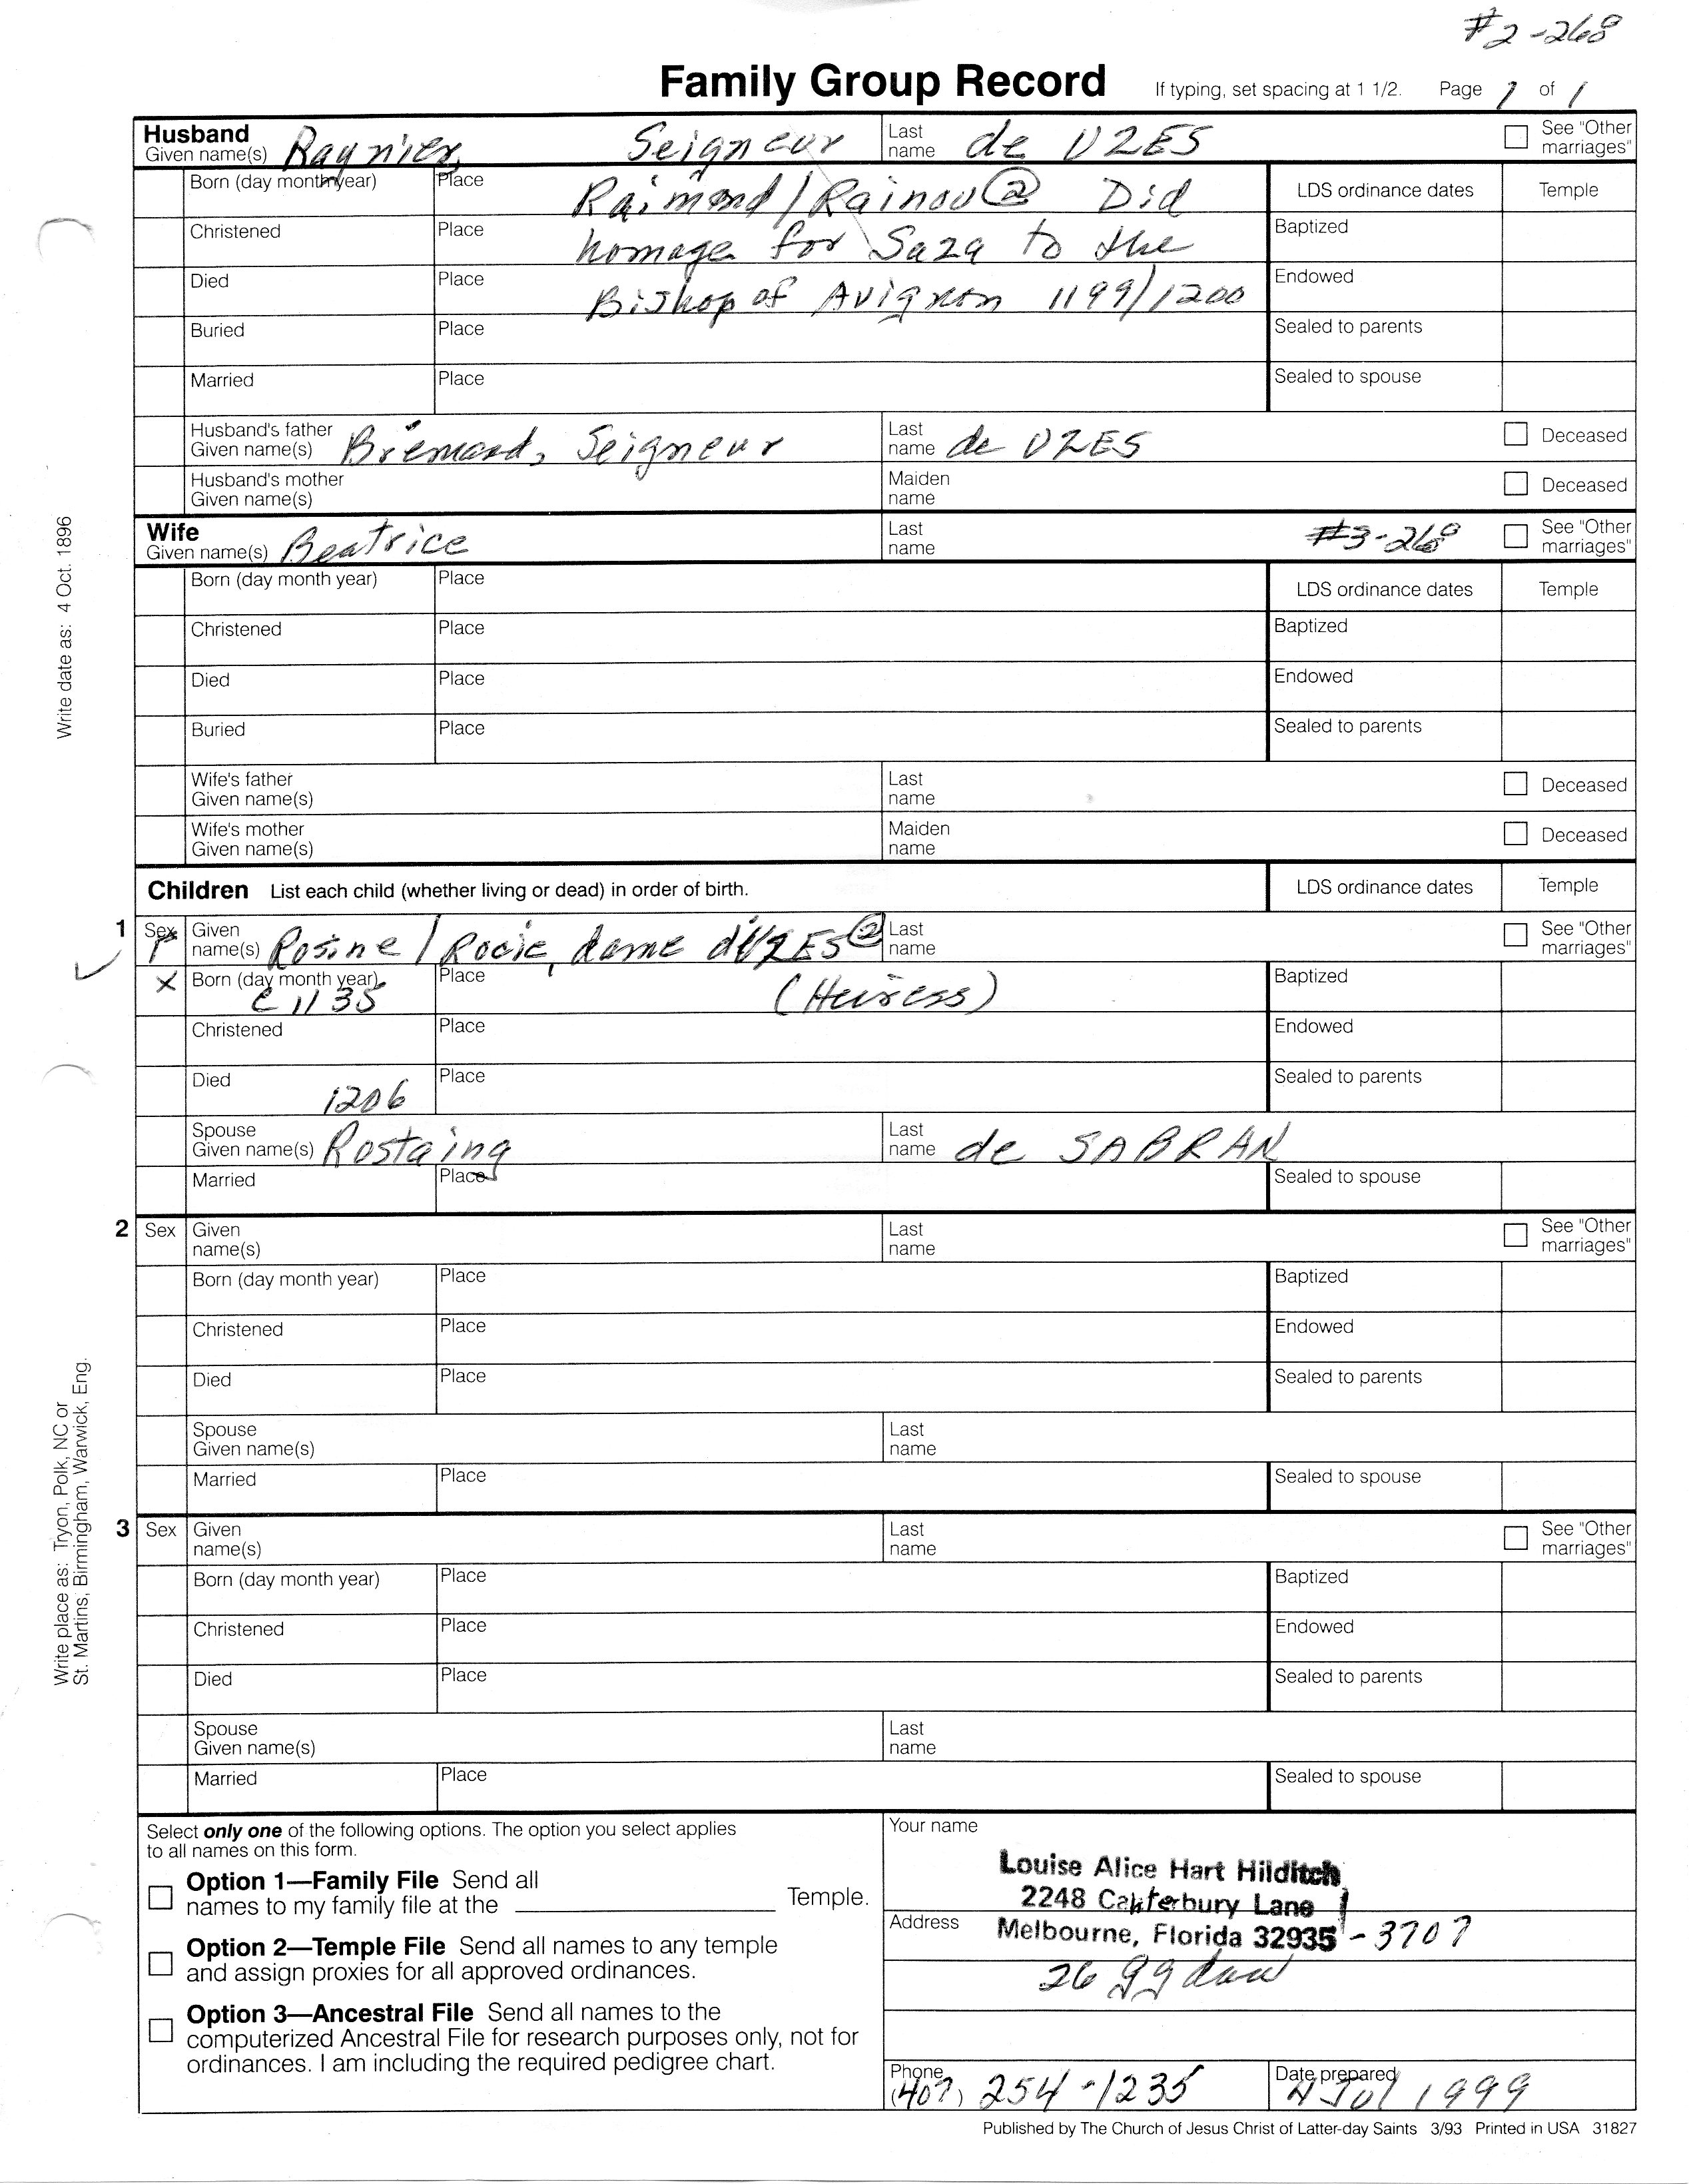 #2-268
Family Group Record If typing, set spacing at 1 1/2. Page 1 of 1
Husband Given name(s) Raynier, Seigneur Last name de UZES See "Other marriages"
Born (day month year) Place Raimond/Rainou@ Did LDS ordinance dates Temple
Christened Place homage for Saza to the Baptized
Died Place Bishop of Avignon 1199/1200 Endowed
Buried Place Sealed to parents
Married Place Sealed to spouse
Husband's father Given name(s) Bremard, Seigneur Last name de UZES Deceased
Husband's mother Given name(s) Maiden name Deceased
Wife Given name(s) Beatrice Last name #3-268 See "Other marriages"
Born (day month year) Place LDS ordinance dates Temple
Christened Place Baptized
Died Place Endowed
Buried Place Sealed to parents
Wife's father Given name(s) Last name Deceased
Wife's mother Given name(s) Maiden name Deceased
Children List each child (whether living or dead) in order of birth. LDS ordinance dates Temple
1 Sex F Given name(s) Rosine/Rocie, dame d'UZES@ Last name See "Other marriages"
X Born (day month year) c 1135 Place (Heiress) Baptized
Christened Place Endowed
Died 1206 Place Sealed to parents
Spouse Given name(s) Rostaing Last name de SABRAN
Married Place Sealed to spouse
2 Sex Given name(s) Last name See "Other marriages"
Born (day month year) Place Baptized
Christened Place Endowed
Died Place Sealed to parents
Spouse Given name(s) Last name
Married Place Sealed to spouse
3 Sex Given name(s) Last name See "Other marriages"
Born (day month year) Place Baptized
Christened Place Endowed
Died Place Sealed to parents
Spouse Given name(s) Last name
Married Place Sealed to spouse
Write date as: 4 Oct. 1896
Write place as: Tryon, Polk, NC or
St. Martins, Birmingham, Warwick, Eng.
Select only one of the following options. The option you select applies
to all names on this form.
Option 1—Family File Send all
names to my family file at the Temple.
Option 2—Temple File Send all names to any temple
and assign proxies for all approved ordinances.
Option 3—Ancestral File Send all names to the
computerized Ancestral File for research purposes only, not for
ordinances. I am including the required pedigree chart.
Your name
Louise Alice Hart Hilditch
2248 Canterbury Lane
Address Melbourne, Florida 32935-3707
26 gg dau
Phone (407) 254-1235 Date prepared 4 Jul 1999
Published by The Church of Jesus Christ of Latter-day Saints 3/93 Printed in USA 31827